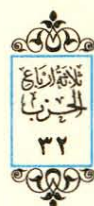 ثلاثة أرباع
الحزب
٣٢